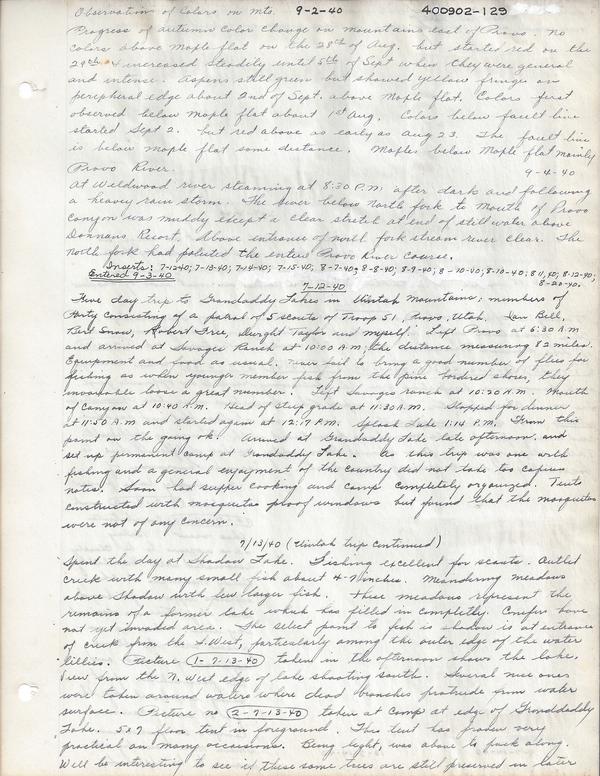 Observation of Colors on Mts. 9-2-40 400902-129
Progress of autumn color change on mountains east of Provo. No
colors above Maple flat on the 28th of Aug. but started red on the
29th & increased steadily until 5th of Sept when they were general
and intense. Aspens still green but showed yellow fringe on
peripheral edge about 2nd of Sept. above Maple flat. Colors first
observed below Maple flat about 1st Aug. Colors below fault line
started Sept 2. but red above as early as Aug 23. The fault line
is below Maple flat some distance. Maples below Maple flat mainly
9-4-40
Provo River.
At Wildwood river steaming at 8:30 P.M. after dark and following
a heavy rain storm. The river below North fork to Mouth of Provo
Canyon was muddy except a clear stretch at end of still water above
Donnans Resort. Above entrance of north fork stream river clear. The
North fork had poluted the entire Provo River Course.
Inserts: 7-12-40; 7-13-40; 7-14-40; 7-15-40; 8-7-40; 8-8-40; 8-9-40; 8-10-40; 8-10-40; 8-11-40; 8-12-40;
Entered 9-3-40 8-20-40.
7-12-40
Five day trip to Grandaddy Lakes in Uintah Mountains; members of
Party consisting of a patrol of 5 scouts of Troop 51, Provo, Utah. Lan Bell,
Bert Snow, Robert Free, Dwight Taylor and myself. Left Provo at 6:30 A.M
and arrived at Savages Ranch at 10:00 A.M; the distance measuring 82 miles.
Equipment and food as usual. Never fail to bring a good number of flies for
fishing as when younger member fish from the pine bordered shores, they
invariable loose a great number. Left Savages ranch at 10:20 A.M. Mouth
of Canyon at 10:40 A.M. Head of steep grade at 11:30 A.M. Stopped for dinner
at 11:50 A.M and started again at 12:17 P.M. Splash Lake 1:14 P.M. From this
point on the going ok. Arrived at Grandaddy Lake late afternoon, and
set up permanent camp at Grandaddy Lake. As this trip was one with
fishing and a general enjoyment of the country did not take too copious
notes. Soon had supper cooking and camp completely organized. Tents
constructed with mosquitoe proof windows but found that the mosquitoes
were not of any concern.
7/13/40 (Uintah trip continued)
Spent the day at Shadow Lake. Fishing excellent for scouts. Outlet
creek with many small fish about 4-7 inches. Meandering meadows
above Shadow with few larger fish. These meadows represent the
remains of a former lake which has filled in completly. Conifer have
not yet invaded area. The select point to fish is shadow is at entrance
of creek from the S. West, particularly among the outer edge of the water
lillies. Picture 1-7-13-40 taken in the afternoon shows the lake
view from the N. West edge of lake shooting south. Several nice ones
were taken around waters where dead branches protrude from water
surface. Picture no 2-7-13-40 taken at Camp at edge of Grandaddy
Lake. 5x7 floor tent in foreground. This tent has proven very
practical on many occasions. Being light, was able to pack along.
Will be interesting to see if these same trees are still preserved in later